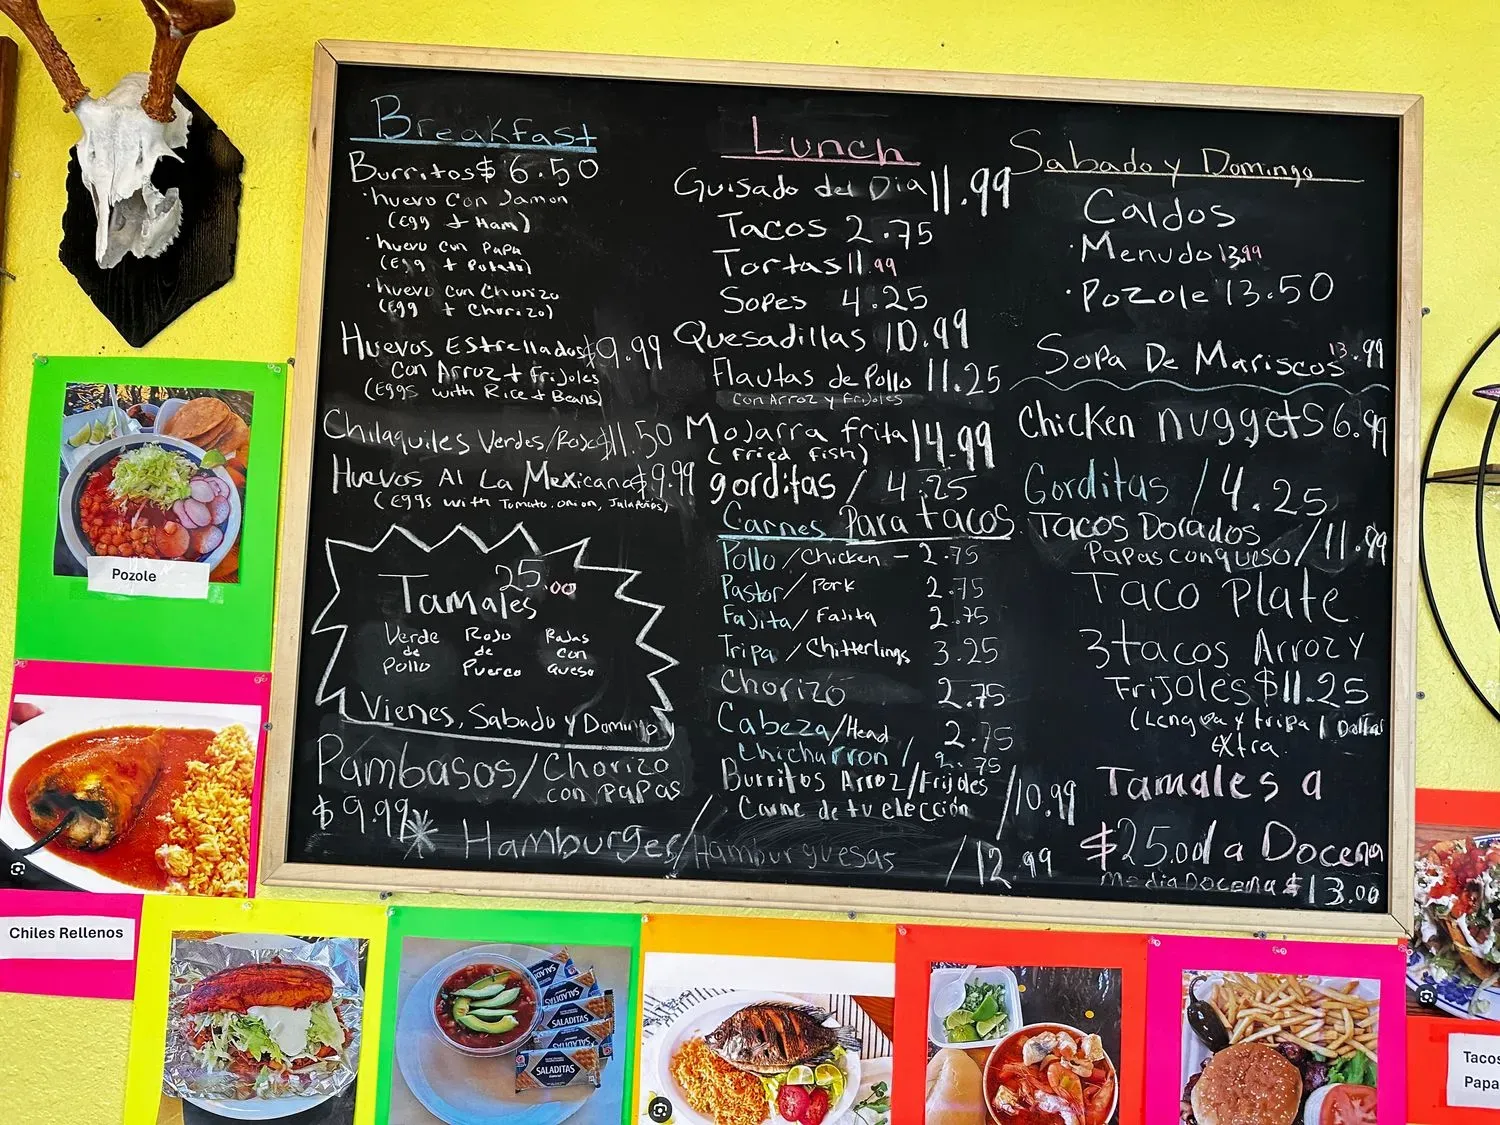 Breakfast
Burritos $ 6.50
· huevo con Jamon
(Egg + Ham)
· huevo con PaPa
(Egg + Potato)
· huevo con Chorizo
(Egg + Chorizo)
Huevos Estrellados $9.99
con Arroz + Frijoles
(Eggs with Rice + Beans)
Chilaquiles Verdes/Rojo $11.50
Huevos Al La Mexicana $9.99
(Eggs with Tomato, onion, Jalapeños)
25.00
Tamales
Verde de Pollo
Rojo de Puerco
Rajas con Queso
Vienes, Sabado y Domingo
Pambasos/Chorizo con PaPas
$9.99
* Hamburger/Hamburguesas /12.99
Lunch
Guisado del Dia 11.99
Tacos 2.75
Tortas 11.99
Sopes 4.25
Quesadillas 10.99
Flautas de Pollo 11.25
con Arroz y Frijoles
Mojarra frita 14.99
(fried fish)
gorditas / 4.25
Carnes Para tacos
Pollo/Chicken - 2.75
Pastor/Pork 2.75
Fajita/Fajita 2.75
Tripa/Chitterlings 3.25
Chorizo 2.75
Cabeza/Head 2.75
Chicharron /
Burritos Arroz/Frijoles /10.99
Carne de tu elección
Sabado y Domingo
Caldos
· Menudo 13.99
· Pozole 13.50
Sopa De Mariscos 13.99
Chicken nuggets 6.99
Gorditas / 4.25
Tacos Dorados /11.99
Papas con queso
Taco Plate
3 tacos Arroz y
Frijoles $11.25
(Lengua y tripa 1
Extra
Tamales a
$25.00 la Docena
Media Docena $13.00
Pozole
Chiles Rellenos
SALADITAS
SALADITAS
SALADITAS
SALADITAS
Tacos
Papa